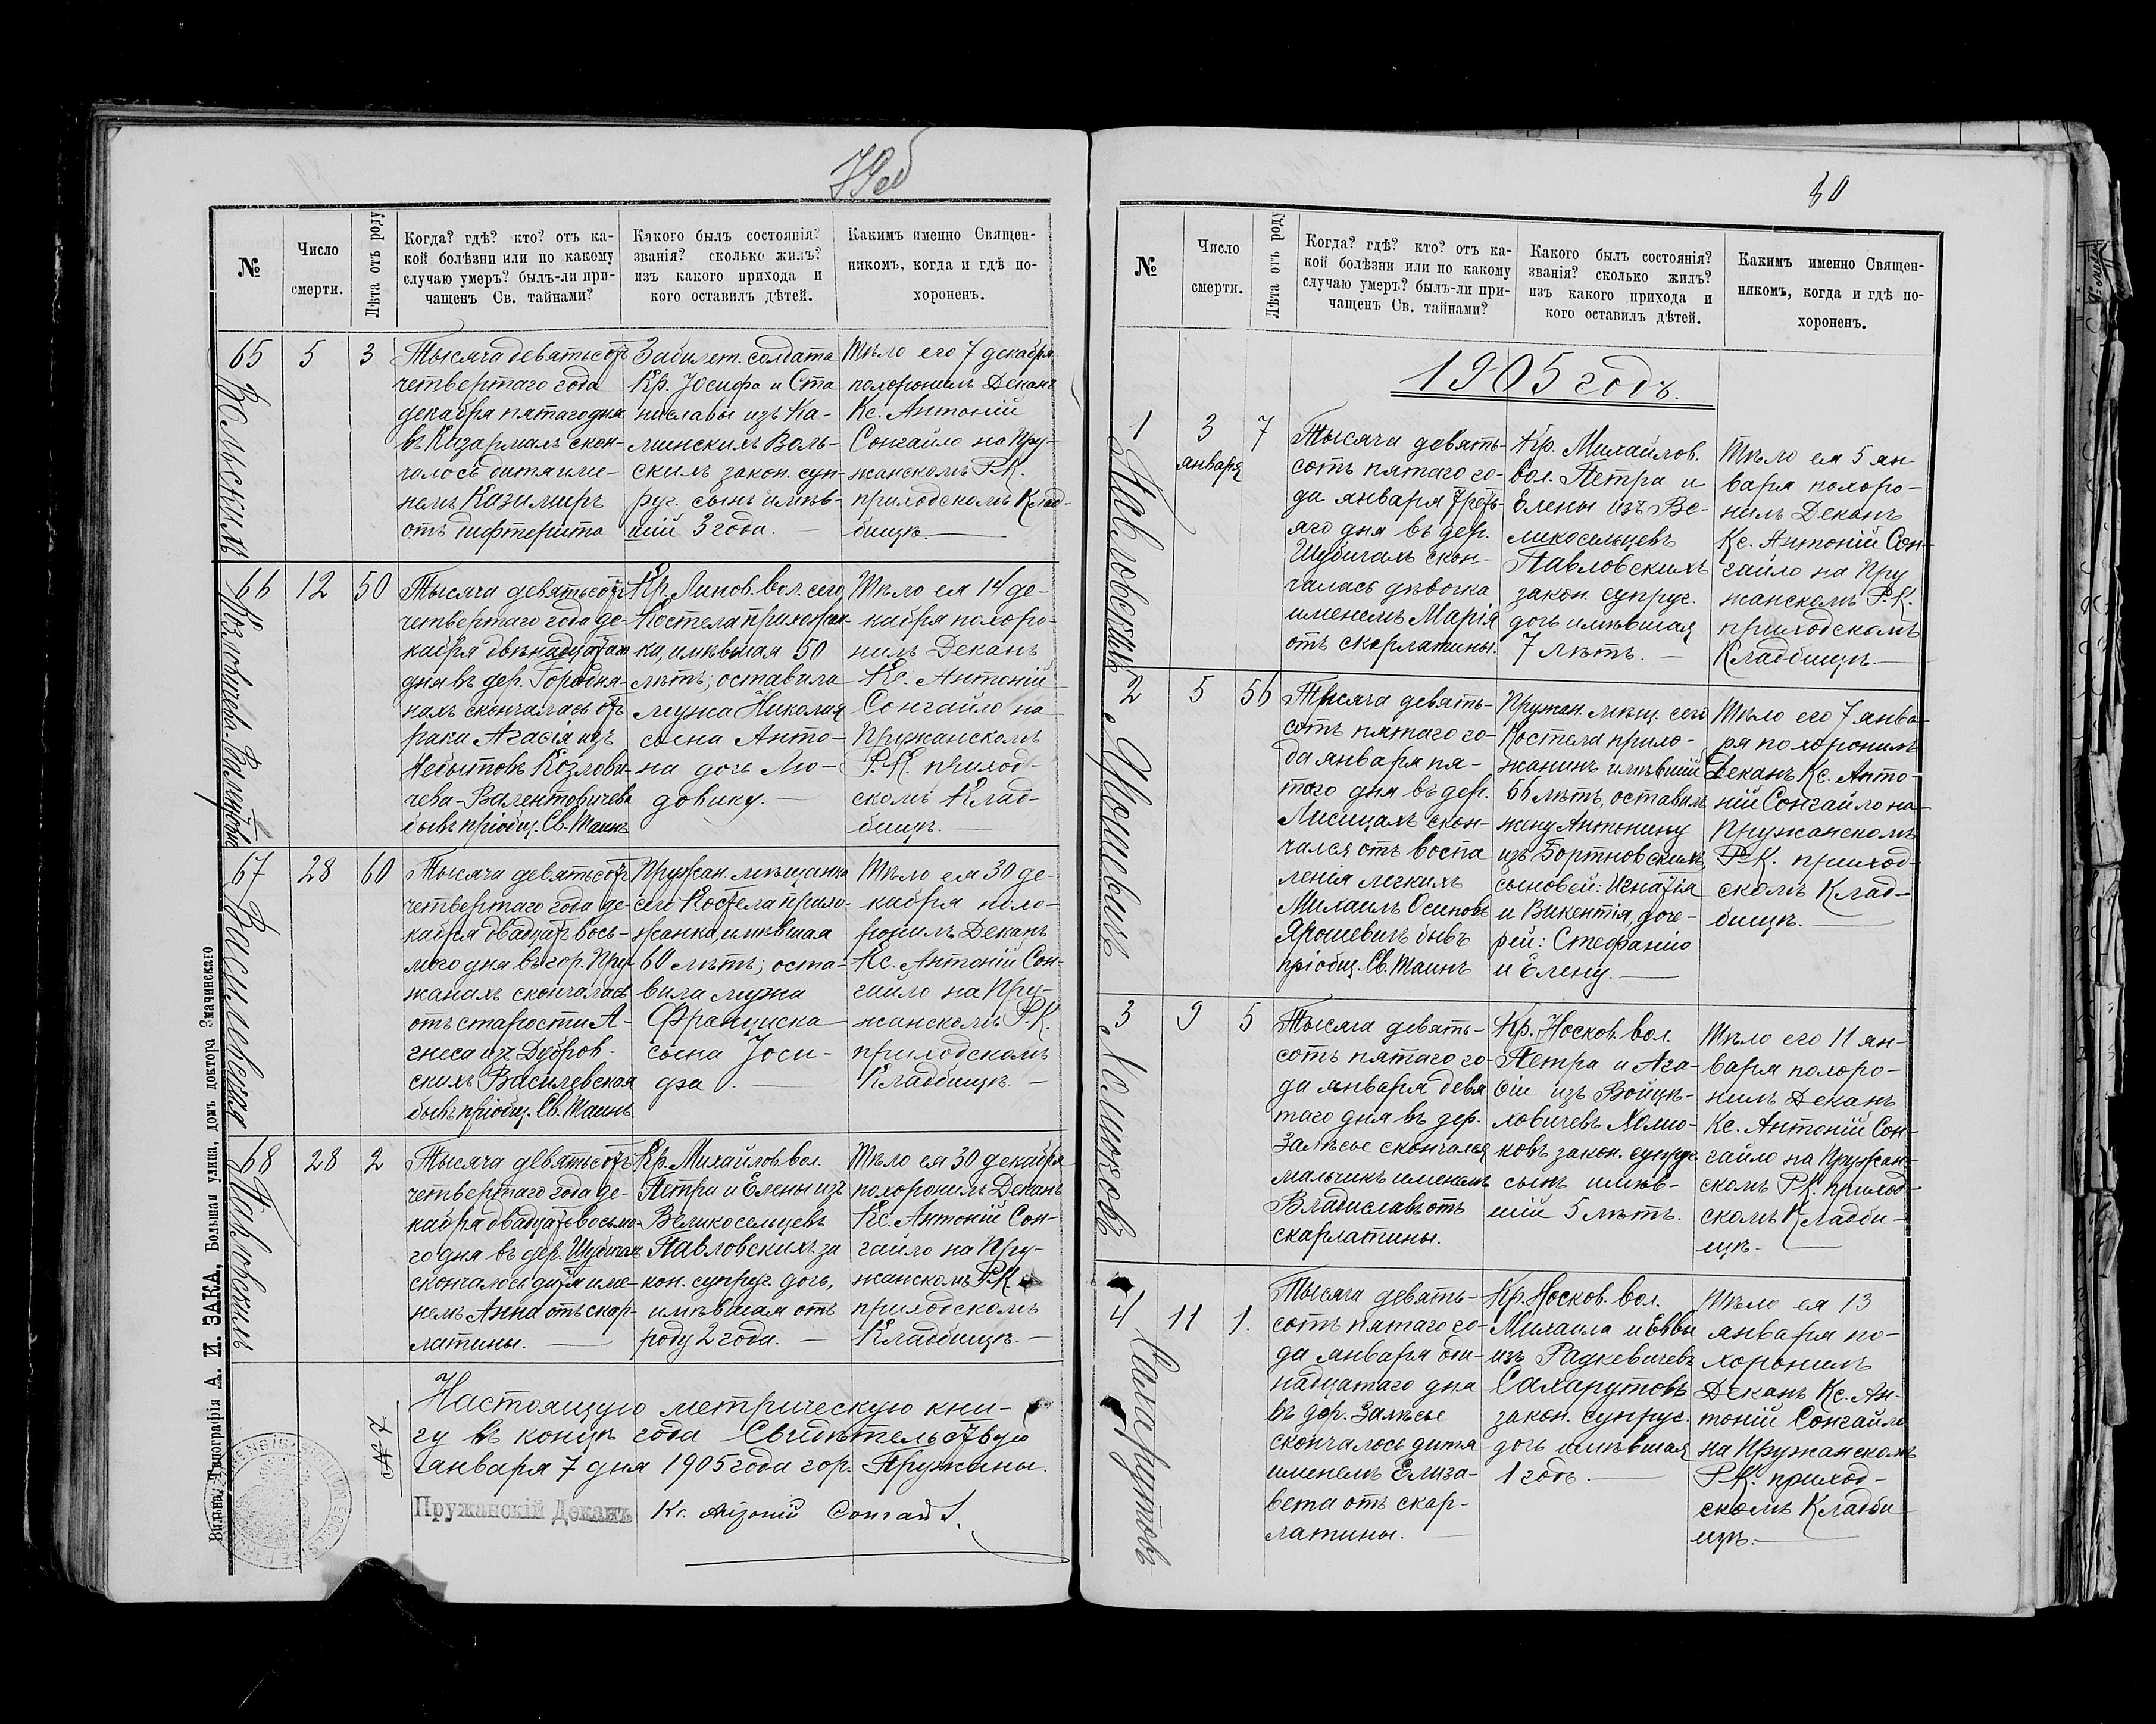 79об
№
Число
смерти.
Лѣта отъ роду
Когда? гдѣ? кто? отъ ка-
кой болѣзни или по какому
случаю умеръ? былъ-ли при-
чащенъ Св. тайнами?
Какого былъ состоянія?
званія? сколько жилъ?
изъ какого прихода и
кого оставилъ дѣтей.
Какимъ именно Священ-
никомъ, когда и гдѣ по-
хороненъ.
65
Вольскихъ
5
3
Тысяча девятьсотъ
четвертаго года
декабря пятаго дня
въ Казармахъ скон-
чалось дитя име-
немъ Казимиръ
отъ дифтерита
Забилет. солдата
Кр. Іосифа и Ста
ниславы изъ Ка-
минскихъ Воль-
скихъ закон. суп-
руг. сынъ имѣв-
шій 3 года. —
Тѣло его 7 декабря
похоронилъ Деканъ
Кс. Антоній
Сонгайло на Пру-
жанскомъ Р.К.
приходскомъ Клад-
бищѣ. —
66
Козловичева-Валентович.
12
50
Тысяча девятьсотъ
четвертаго года де-
кабря двѣнадцатаго
дня въ дер. Городня-
нахъ скончалась отъ
рака Агафія изъ
Небытовъ Козлови-
чева-Валентовичева
бывъ пріобщ. Св. Таинъ
Кр. Линов. вол. сего
Костела прихожан-
ка, имѣвшая 50
лѣтъ; оставила
мужа Николая
сына Анто-
на дочь Лю-
довику. —
Тѣло ея 14 де-
кабря похоро-
нилъ Деканъ
Кс. Антоній
Сонгайло на
Пружанскомъ
Р.К. приход-
скомъ Клад-
бищѣ. —
67
Василевская
28
60
Тысяча девятьсотъ
четвертаго года де-
кабря двадцать вось-
мого дня въ гор. Пру-
жанахъ скончалась
отъ старости А-
гнеса изъ Дубров-
скихъ Василевская
бывъ пріобщ. Св. Таинъ
Пружан. мѣщанка
сего Костела прихо-
жанка, имѣвшая
60 лѣтъ; оста-
вила мужа
Франциска
сына Іоси-
фа. —
Тѣло ея 30 де-
кабря похо-
ронилъ Деканъ
Кс. Антоній Сон-
гайло на Пру-
жанскомъ Р.К.
приходскомъ
Кладбищѣ. —
68
Павловскихъ
28
2
Тысяча девятьсотъ
четвертаго года де-
кабря двадцать восьмо-
го дня въ дер. Шубичахъ
скончалось дитя име-
немъ Анна отъ скар-
латины. —
Кр. Михайлов. вол.
Петра и Елены изъ
Великосельцевъ
Павловскихъ за
кон. супруг. дочь,
имѣвшая отъ
роду 2 года. —
Тѣло ея 30 декабря
похоронилъ Деканъ
Кс. Антоній Сон-
гайло на Пру-
жанскомъ Р.К
приходскомъ
Кладбищѣ. —
№ 7
Настоящую метрическую кни-
гу въ концѣ года Свидѣтельствую
Января 7 дня 1905 года гор. Пружаны.
Пружанскій Деканъ Кс. Антоній Сонгайл.
Вильна, Типографія А. И. ЗАКА, Большая улица, домъ доктора Змачинскаго
80
№
Число
смерти.
Лѣта отъ роду
Когда? гдѣ? кто? отъ ка-
кой болѣзни или по какому
случаю умеръ? былъ-ли при-
чащенъ Св. тайнами?
Какого былъ состоянія?
званія? сколько жилъ?
изъ какого прихода и
кого оставилъ дѣтей.
Какимъ именно Священ-
никомъ, когда и гдѣ по-
хороненъ.
1905 годъ.
1
Павловскихъ
3
января
7
Тысяча девять-
сотъ пятаго го-
да января треть-
яго дня въ дер.
Шубичахъ скон-
чалась дѣвочка
именемъ Марія
отъ скарлатины.
Кр. Михайлов.
вол. Петра и
Елены изъ Ве-
ликосельцевъ
Павловскихъ
закон. супруг.
дочь имѣвшая
7 лѣтъ. —
Тѣло ея 5 ян
варя похоро-
нилъ Деканъ
Кс. Антоній Сон-
гайло на Пру
жанскомъ Р.К.
приходскомъ
Кладбищѣ —
2
Ярошевичъ
5
56
Тысяча девять-
сотъ пятаго го-
да января пя-
таго дня въ дер.
Лисицахъ скон-
чался отъ воспа
ленія легкихъ
Михаилъ Осиповъ
Ярошевичъ бывъ
пріобщ. Св. Таинъ
Пружан. мѣщ. сего
Костела прихо-
жанинъ имѣвшій
56 лѣтъ, оставилъ
жену Антонину
изъ Бортновскихъ,
сыновей: Игнатія
и Викентія, доче-
рей: Стефанію
и Елену. —
Тѣло его 7 янва-
ря похоронилъ
Деканъ Кс. Анто-
ній Сонгайло на
Пружанскомъ
Р.К. приход-
скомъ Клад-
бищѣ. —
3
Хомюковъ
9
5
Тысяча девять-
сотъ пятаго го-
да января девя
таго дня въ дер.
Залѣсье скончался
мальчикъ именемъ
Владиславъ отъ
скарлатины.
Кр. Носков. вол.
Петра и Ага-
фіи изъ Войцѣ-
ховичевъ Хомю-
ковъ закон. супруг.
сынъ имѣв-
шій 5 лѣтъ.
Тѣло его 11 ян-
варя похоро-
нилъ Деканъ
Кс. Антоній Сон-
гайло на Пружан-
скомъ Р.К. приход-
скомъ Кладби-
щѣ. —
4
Сахарутовъ
11
1.
Тысяча девять-
сотъ пятаго го-
да января оди-
надцатаго дня
въ дер. Залѣсье
скончалось дитя
именемъ Елиза-
вета отъ скар-
латины. —
Кр. Носков. вол.
Михаила и Евы
изъ Радкевичевъ
Сахарутовъ
закон. супруг.
дочь имѣвшая
1 годъ. —
Тѣло ея 13
января по-
хоронилъ
Деканъ Кс. Ан-
тоній Сонгайло
на Пружанскомъ
Р.К. приход-
скомъ Кладби
щѣ. —